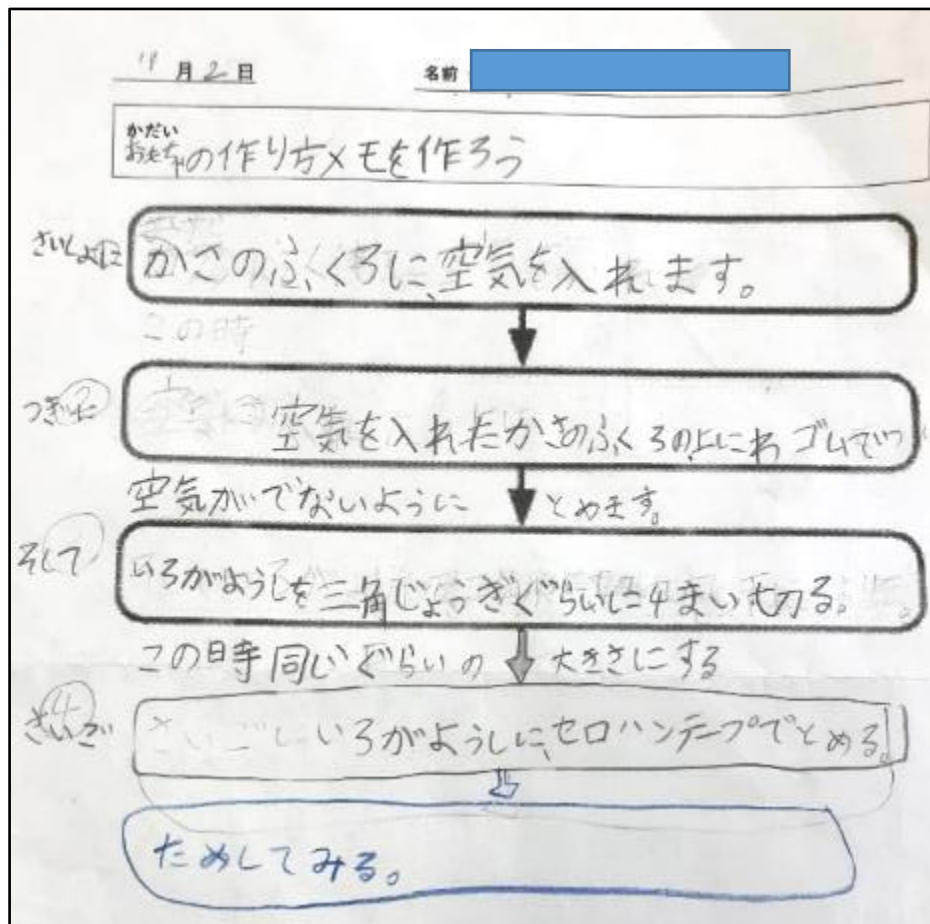 11月2日 名前
かだい
おもちゃの作り方メモを作ろう
さいしょに かさのふくろに、空気を入れます。
この時
つぎに 空気を入れたかさのふくろの上にわゴムでつ
空気がでないように とめます。
そして いろがようしを三角じょうぎぐらいに4まい切る。
この時同じぐらいの 大きさにする
さいご さいごにいろがようしに、セロハンテープでとめる。
ためしてみる。